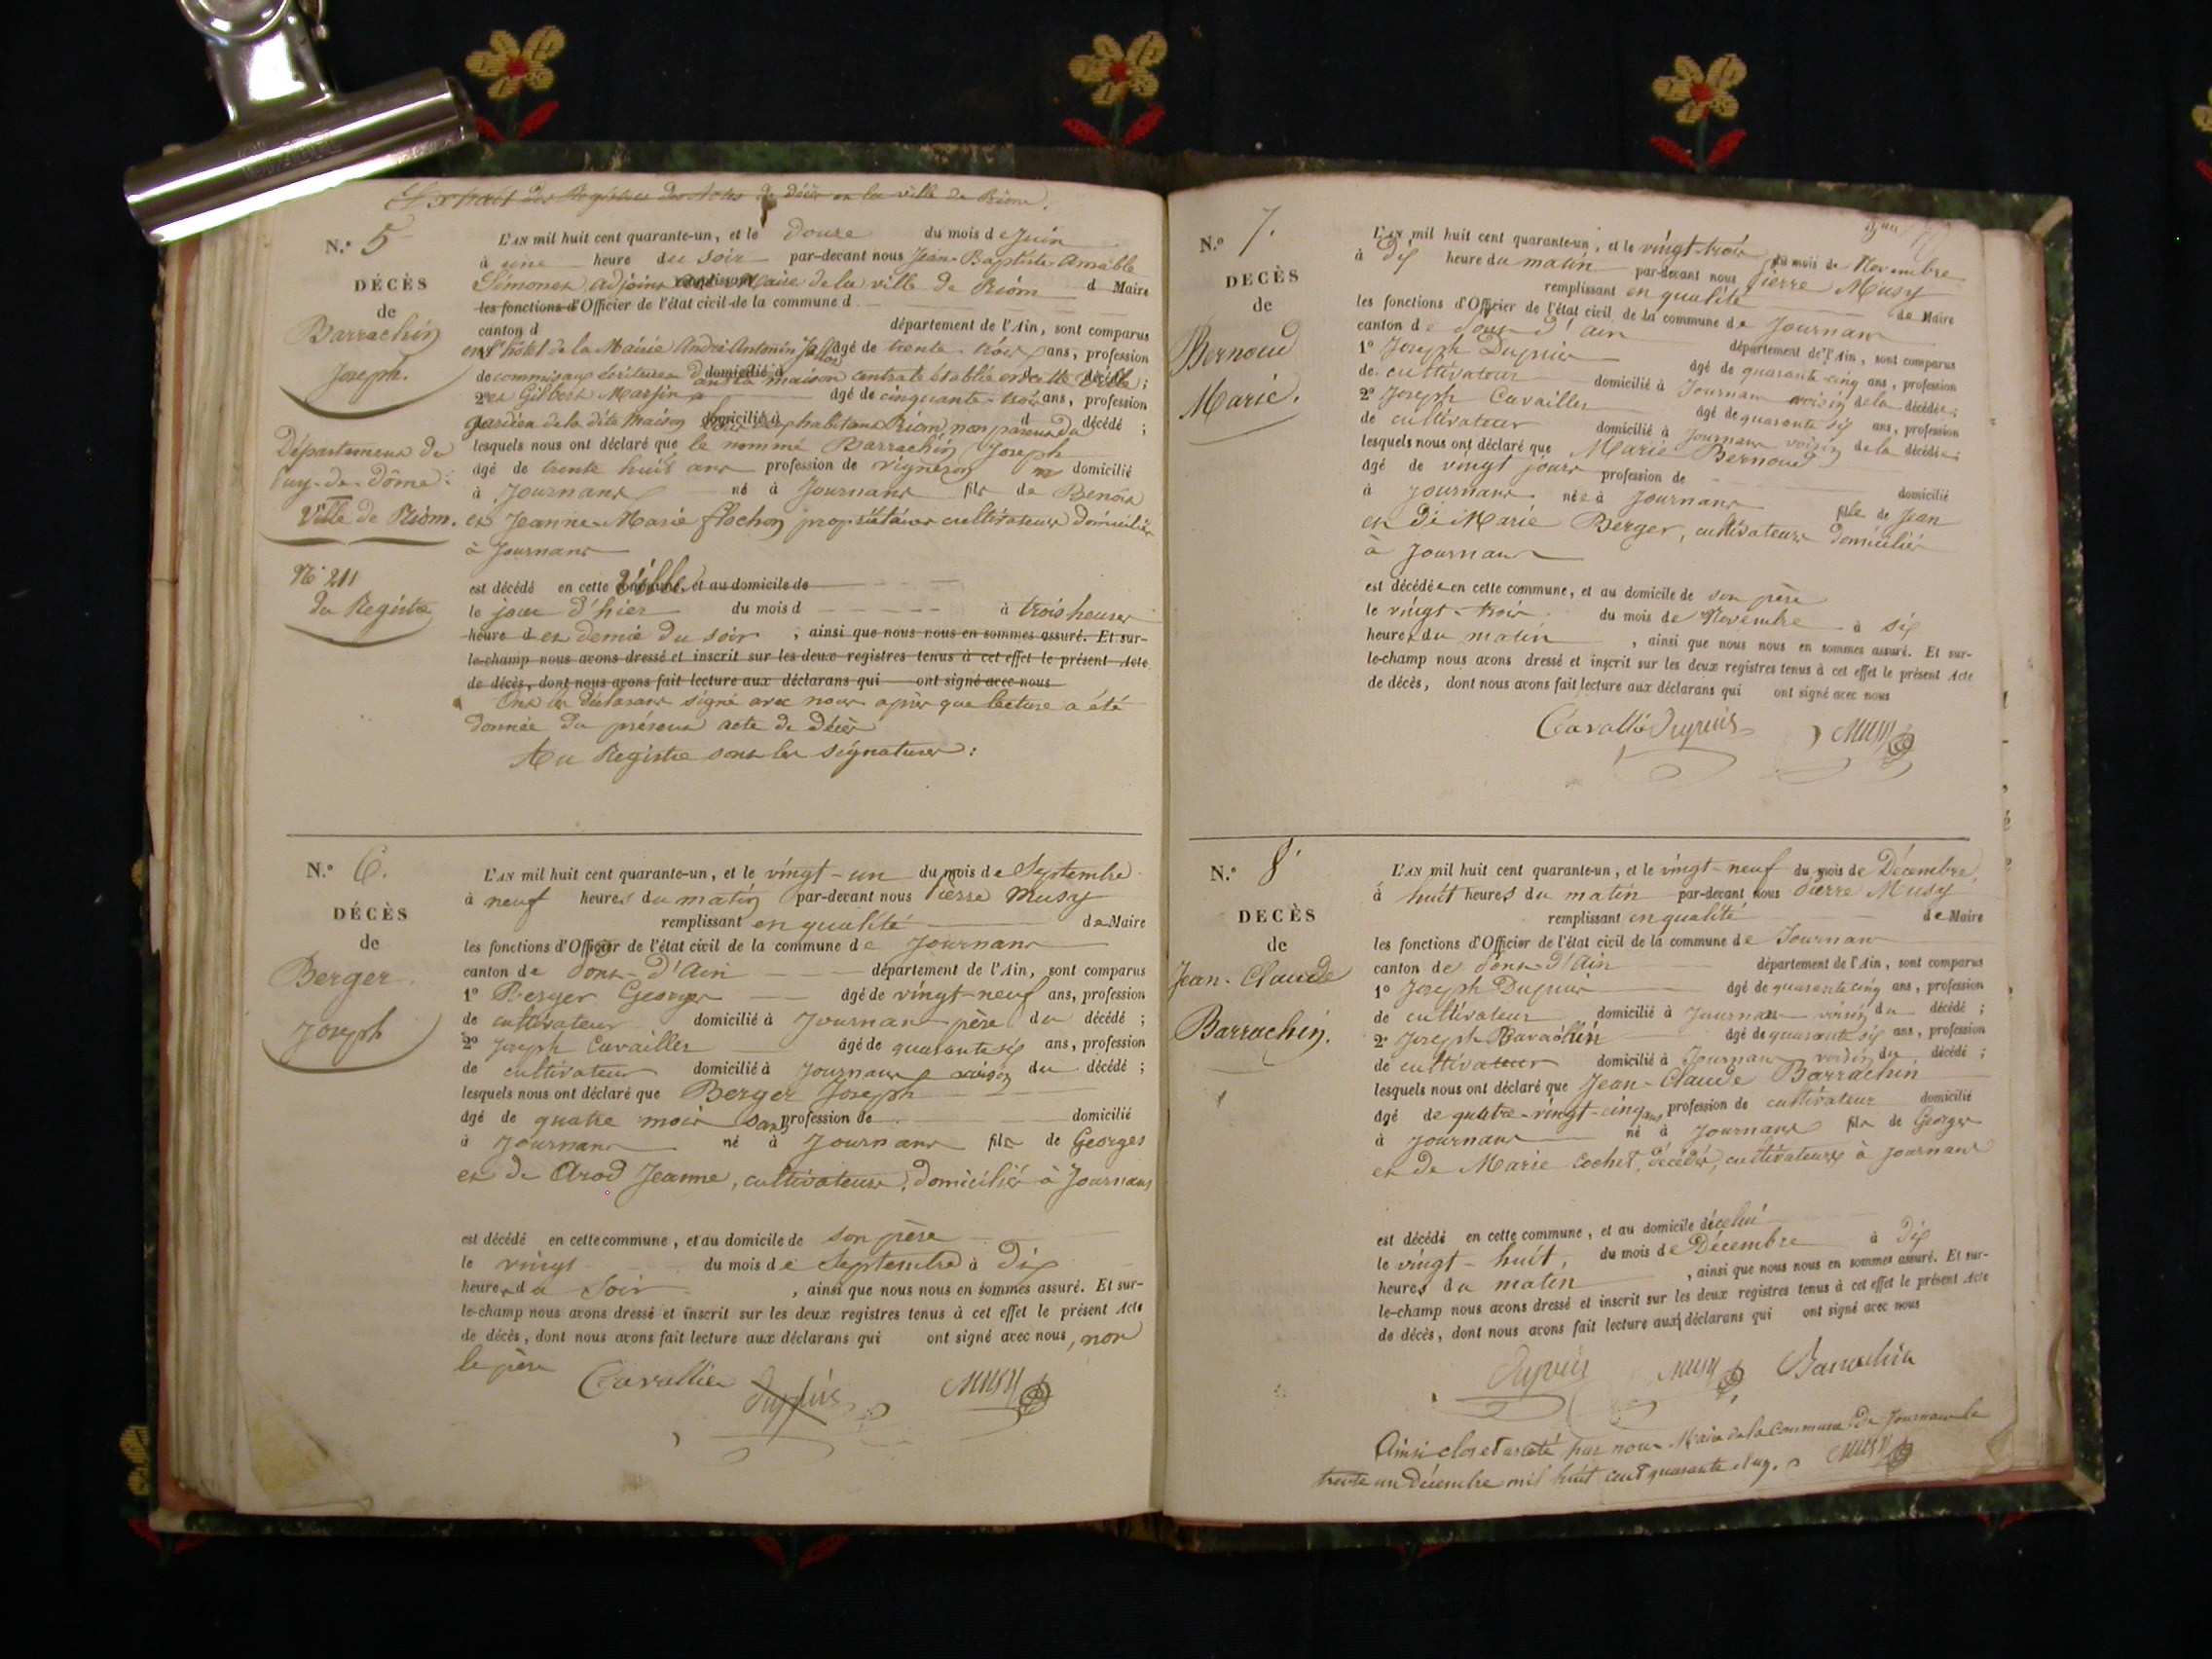 Extrait des Registres des Actes de Décès de la ville de Riom.
N.° 5
DÉCÈS
de
Barrachin
Joseph.
Département du
Puy-de-Dôme.
Ville de Riom.
N° 211
du Registre
L'AN mil huit cent quarante-un, et le douze du mois de Juin
à une heure du soir par-devant nous Jean-Baptiste Amable
Simonet adjoint Maire de la ville de Riom d Maire
les fonctions d'Officier de l'état civil de la commune d
canton d département de l'Ain, sont comparus
en l'hôtel de la Mairie André Antonin âgé de trente-trois ans, profession
de commis aux écritures dans la maison centrale établie en cette ville ;
2° et Gilbert Marsin âgé de cinquante-trois ans, profession
gardien de la dite maison domicilié à habitant Riom, non parens du décédé ;
lesquels nous ont déclaré que le nommé Barrachin Joseph
âgé de trente huit ans profession de vigneron domicilié
à Journans né à Journans fils de Benoit
et Jeanne-Marie flochon propriétaires cultivateurs domiciliés
à Journans
est décédé en cette Ville et au domicile de
le jour d'hier du mois d à trois heures
heure d et demie du soir ; ainsi que nous nous en sommes assuré. Et sur-
le-champ nous avons dressé et inscrit sur les deux registres tenus à cet effet le présent Acte
de décès, dont nous avons fait lecture aux déclarans qui ont signé avec nous
Ont les déclarans signé avec nous après que lecture a été
donnée du présent acte de décès
Au Registre sont les signatures :
N.° 6.
DÉCÈS
de
Berger.
Joseph
L'AN mil huit cent quarante-un, et le vingt-un du mois de Septembre
à neuf heures du matin par-devant nous Pierre Musy
remplissant en qualité de Maire
les fonctions d'Officier de l'état civil de la commune de Journans
canton de Pont-d'Ain département de l'Ain, sont comparus
1° Berger Georges âgé de vingt-neuf ans, profession
de cultivateur domicilié à Journans père du décédé ;
2° Joseph Cavailler âgé de quarante six ans, profession
de cultivateur domicilié à Journans voisin du décédé ;
lesquels nous ont déclaré que Berger Joseph
âgé de quatre mois sans profession de domicilié
à Journans né à Journans fils de Georges
et de Arod Jeanne, cultivateurs, domiciliés à Journans
est décédé en cette commune, et au domicile de son père
le vingt du mois de Septembre à dix
heures du soir , ainsi que nous nous en sommes assuré. Et sur-
le-champ nous avons dressé et inscrit sur les deux registres tenus à cet effet le présent Acte
de décès, dont nous avons fait lecture aux déclarans qui ont signé avec nous, non
le père
Cavallier Dupuis Musy
N.° 7.
DECÈS
de
Bernoud
Marie.
L'AN mil huit cent quarante-un, et le vingt-trois du mois de Novembre
à dix heure du matin par-devant nous Pierre Musy
remplissant en qualité de Maire
les fonctions d'Officier de l'état civil de la commune de Journans
canton de Pont-d'ain département de l'Ain, sont comparus
1° Joseph Dupuis âgé de quarante cinq ans, profession
de cultivateur domicilié à Journans voisin de la décédée ;
2° Joseph Cavailler âgé de quarante six ans, profession
de cultivateur domicilié à Journans voisin de la décédée ;
lesquels nous ont déclaré que Marie Bernoud
âgé de vingt jours profession de domicilié
à Journans née à Journans fille de Jean
et de Marie Berger, cultivateurs domiciliés
à Journans
est décédée en cette commune, et au domicile de son père
le vingt-trois du mois de Novembre à six
heures du matin , ainsi que nous nous en sommes assuré. Et sur-
le-champ nous avons dressé et inscrit sur les deux registres tenus à cet effet le présent Acte
de décès, dont nous avons fait lecture aux déclarans qui ont signé avec nous
Cavallié Dupuis Musy
N.° 8
DECÈS
de
Jean-Claude
Barrachin.
L'AN mil huit cent quarante-un, et le vingt-neuf du mois de Décembre,
à huit heures du matin par-devant nous Pierre Musy
remplissant en qualité de Maire
les fonctions d'Officier de l'état civil de la commune de Journans
canton de Pont-d'Ain département de l'Ain, sont comparus
1° Joseph Dupuis âgé de quarante cinq ans, profession
de cultivateur domicilié à Journans voisin du décédé ;
2° Joseph Barrachin âgé de quarante six ans, profession
de cultivateur domicilié à Journans voisin du décédé ;
lesquels nous ont déclaré que Jean-Claude Barrachin
âgé de quatre-vingt-cinq ans profession de cultivateur domicilié
à Journans né à Journans fils de Georges
et de Marie Cochet, décédés, cultivateurs à Journans
est décédé en cette commune, et au domicile de celui
le vingt-huit, du mois de Décembre à dix
heures du matin , ainsi que nous nous en sommes assuré. Et sur-
le-champ nous avons dressé et inscrit sur les deux registres tenus à cet effet le présent Acte
de décès, dont nous avons fait lecture aux déclarans qui ont signé avec nous
Dupuis Musy Barrachin
Ainsi clos et arrêté par nous Maire de la Commune de Journans le
trente un Décembre mil huit cent quarante et un. Musy